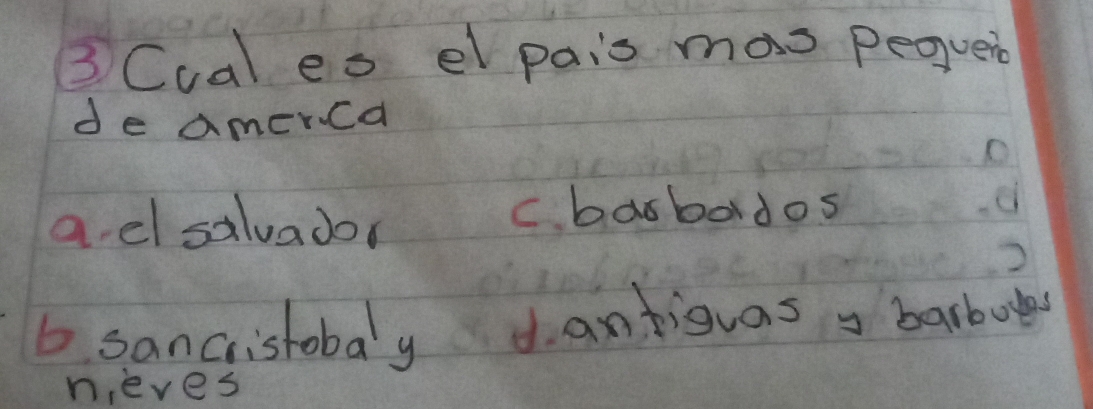 3 Cual es el pais mas pequeño
de america
a. el salvador
b. sancristobal y
nieves
c. barbados
d. antiguas y barbudas